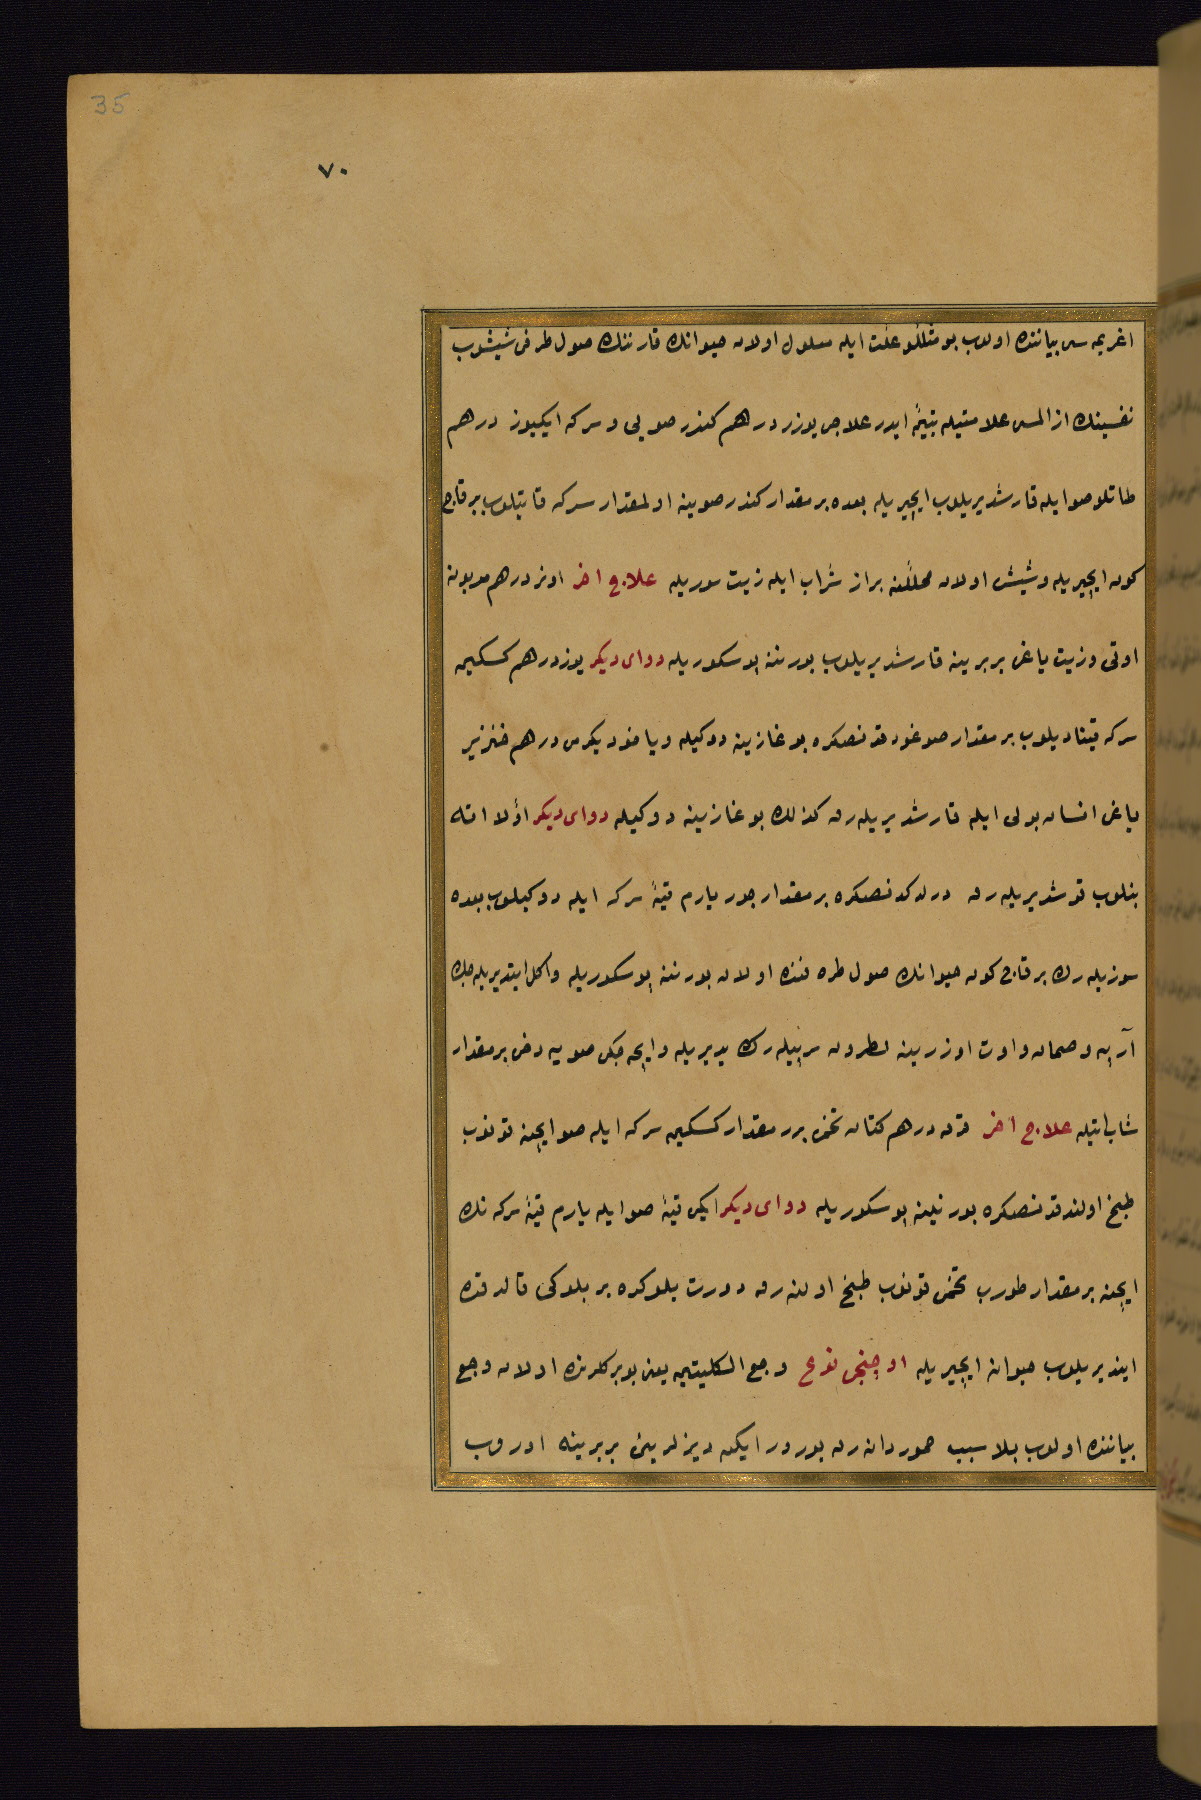 35
٧٠
اغریمه سی بیاننده اولوب بو مثللو علت ایله معلول اولان حیوانك قارننك صول طرفی شیشوب
نفسینك ازالمسی علامتیله تبیّن ایدر علاجی یوز درهم كندر صویی و سركه ایكیوز درهم
طاتلو صو ایله قارشدیریلوب ایچیریله بعده بر مقدار كندر صوینه اولمقدار سركه قاتیلوب بر قاچ
كون ایچیریله و شیش اولان محللنه براز شراب ایله زیت سوریله علاج اخر اوتز درهم
اوتی و زیت یاغی بربرینه قارشدیریلوب بورننه پوسكوریله دوای دیكر یوز درهم كسكین
سركه قینادیلوب بر مقدار صوغودقدنصكره بوغازینه دوكیله ویاخود یكرمی درهم خنزیر
یاغی انسان بولی ایله قارشدیریله رق كذلك بوغازینه دوكیله دوای دیكر اوّلا اته
بنلوب قوشدیریله رق درلدكدنصكره بر مقدار جور یارم قیّه سركه ایله دوكیلوب بعده
سوزیله رك بر قاچ كون حیوانك صول طرفنده اولان بورننه پوسكوریله و اكل ایتدیریله جك
آرپه و صمان و اوت اوزرینه نطرون سرپیله رك یدیریله و ایچه جكی صویه دخی بر مقدار
شاب اتیله علاج اخر قرق درهم كتان تخمی بر مقدار كسكین سركه ایله صو ایچنه قونوب
طبخ اولندقدنصكره بورنینه پوسكوریله دوای دیكر ایكی قیّه صو ایله یارم قیّه سركه نك
ایچنه بر مقدار طورب تخمی قونوب طبخ اولنه رق دورت بلوكده بر بلوكی قالدقده
ایندیریلوب حیوانه ایچیریله اوچنجی نوع وجع الكلیتین یعنی بوبركلرنده اولان وجع
بیاننده اولوب بلا سبب حیوان یورور ایكن دیزلرینی بربرینه اوروب